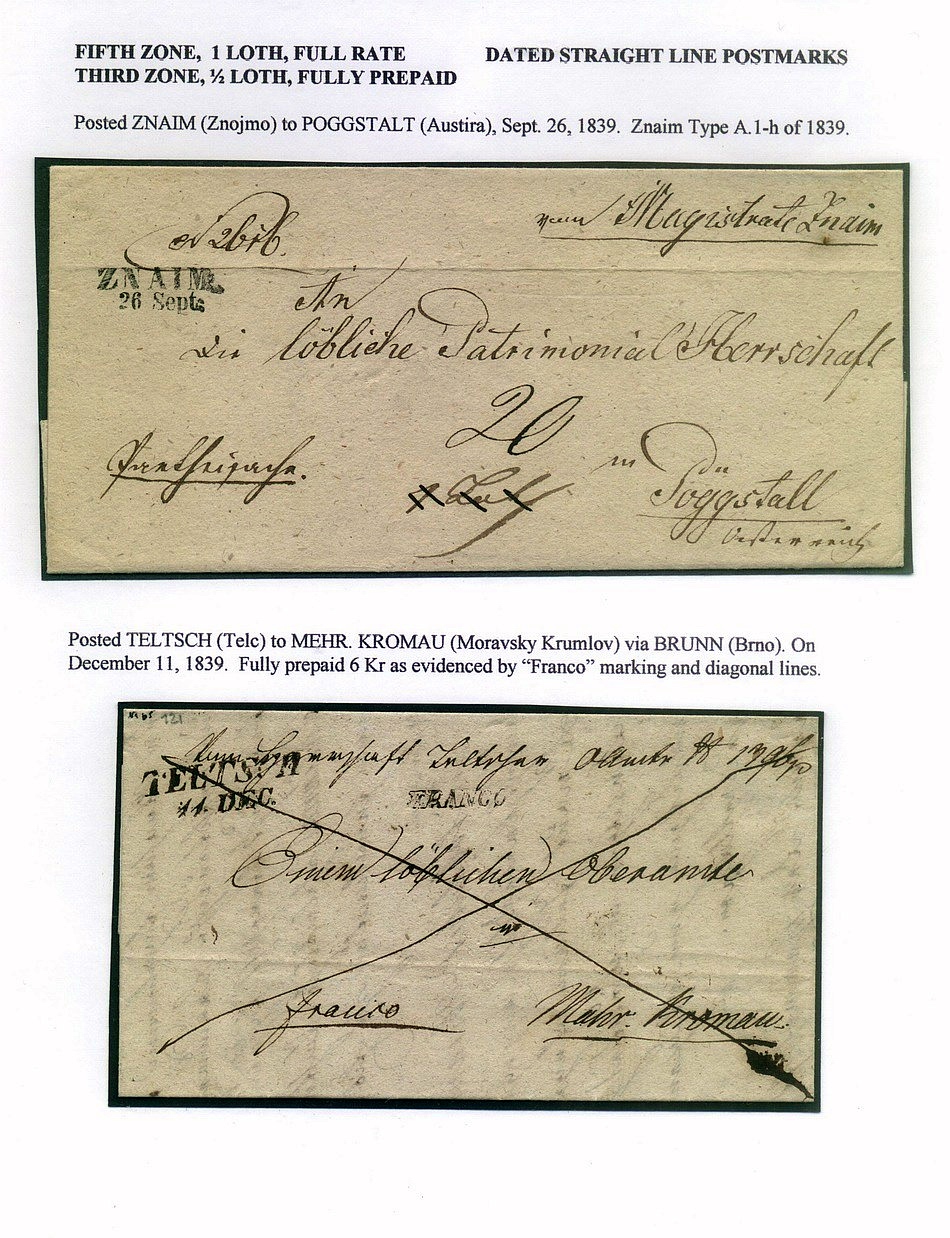 FIFTH ZONE, 1 LOTH, FULL RATE
DATED STRAIGHT LINE POSTMARKS
THIRD ZONE, ½ LOTH, FULLY PREPAID
Posted ZNAIM (Znojmo) to POGGSTALT (Austira), Sept. 26, 1839. Znaim Type A.1-h of 1839.
vom Magistrate Znaim
ZNAIM.
26 Sept:
An
Die löbliche Patrimonial Herrschaft
20
Partheisache.
in
Pöggstall
Oesterreich
Posted TELTSCH (Telc) to MEHR. KROMAU (Moravsky Krumlov) via BRUNN (Brno). On
December 11, 1839. Fully prepaid 6 Kr as evidenced by “Franco” marking and diagonal lines.
121
TELTSCH
11. DEC.
FRANCO
Einem löblichen Oberamte
in
franco
Mähr. Kromau.